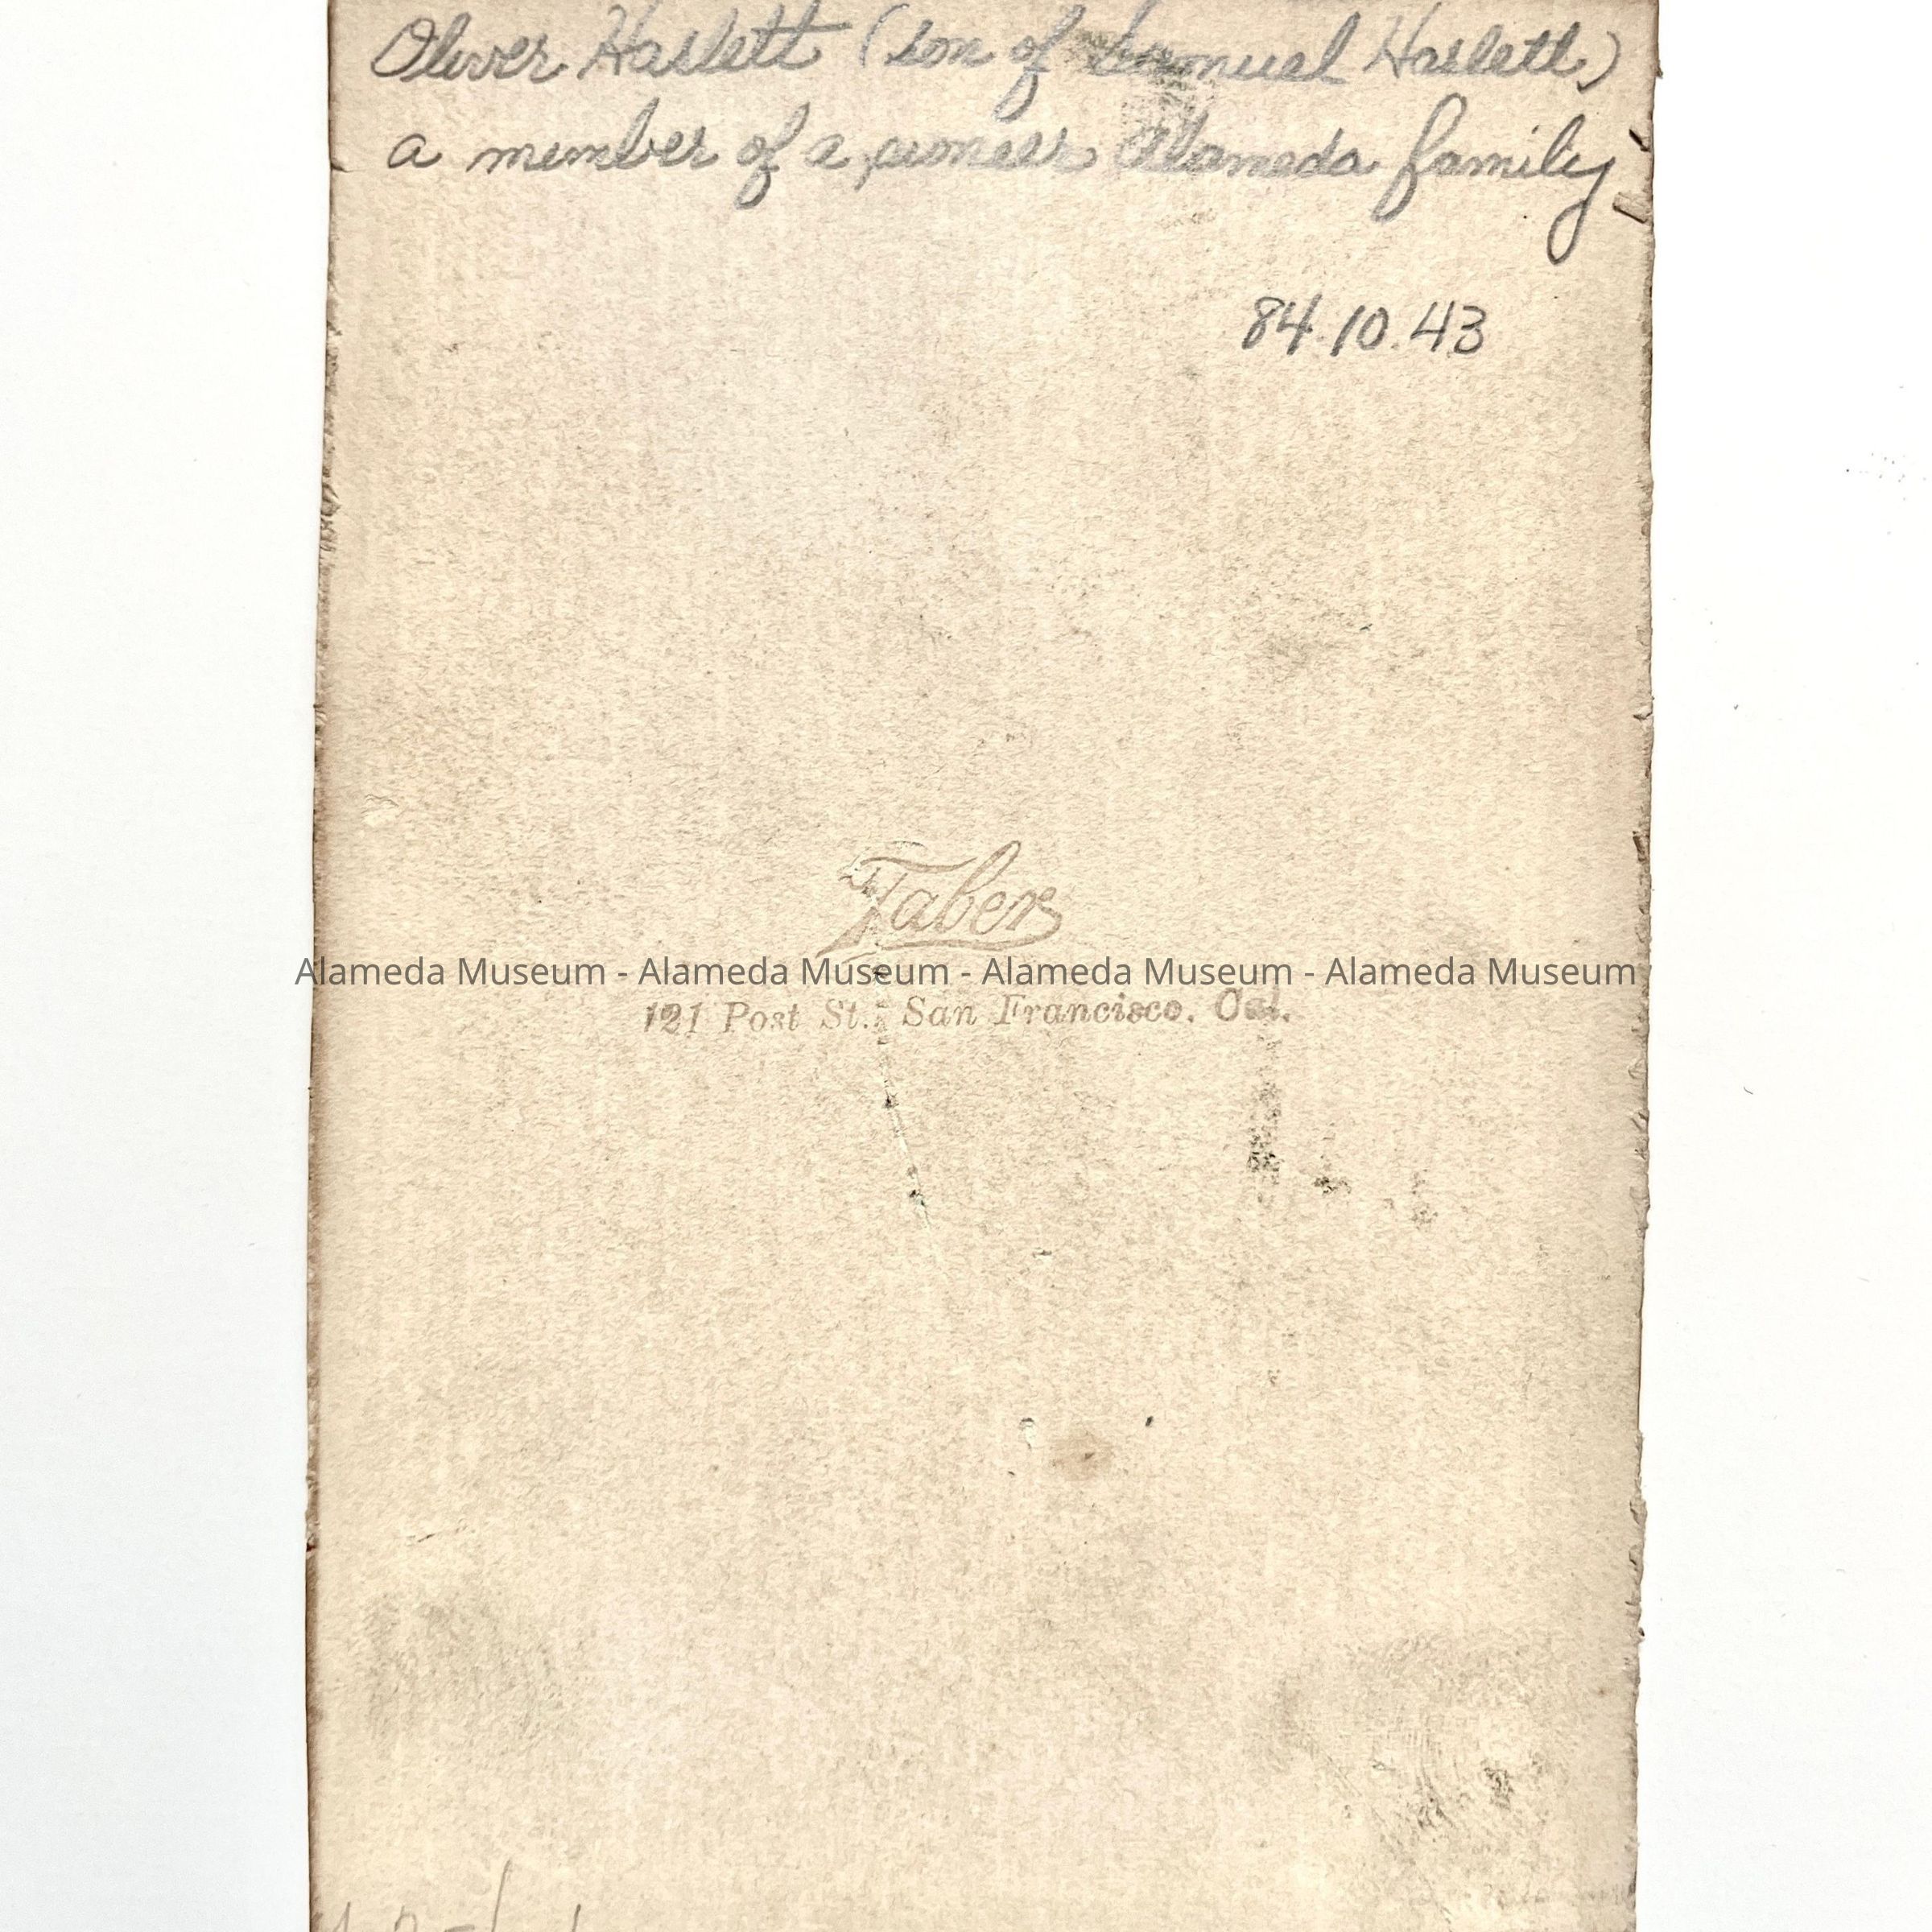 Oliver Haslett (son of Samuel Haslett)
a member of a pioneer Alameda family
84.10.43
Taber
Alameda Museum - Alameda Museum - Alameda Museum - Alameda Museum
121 Post St., San Francisco, Cal.